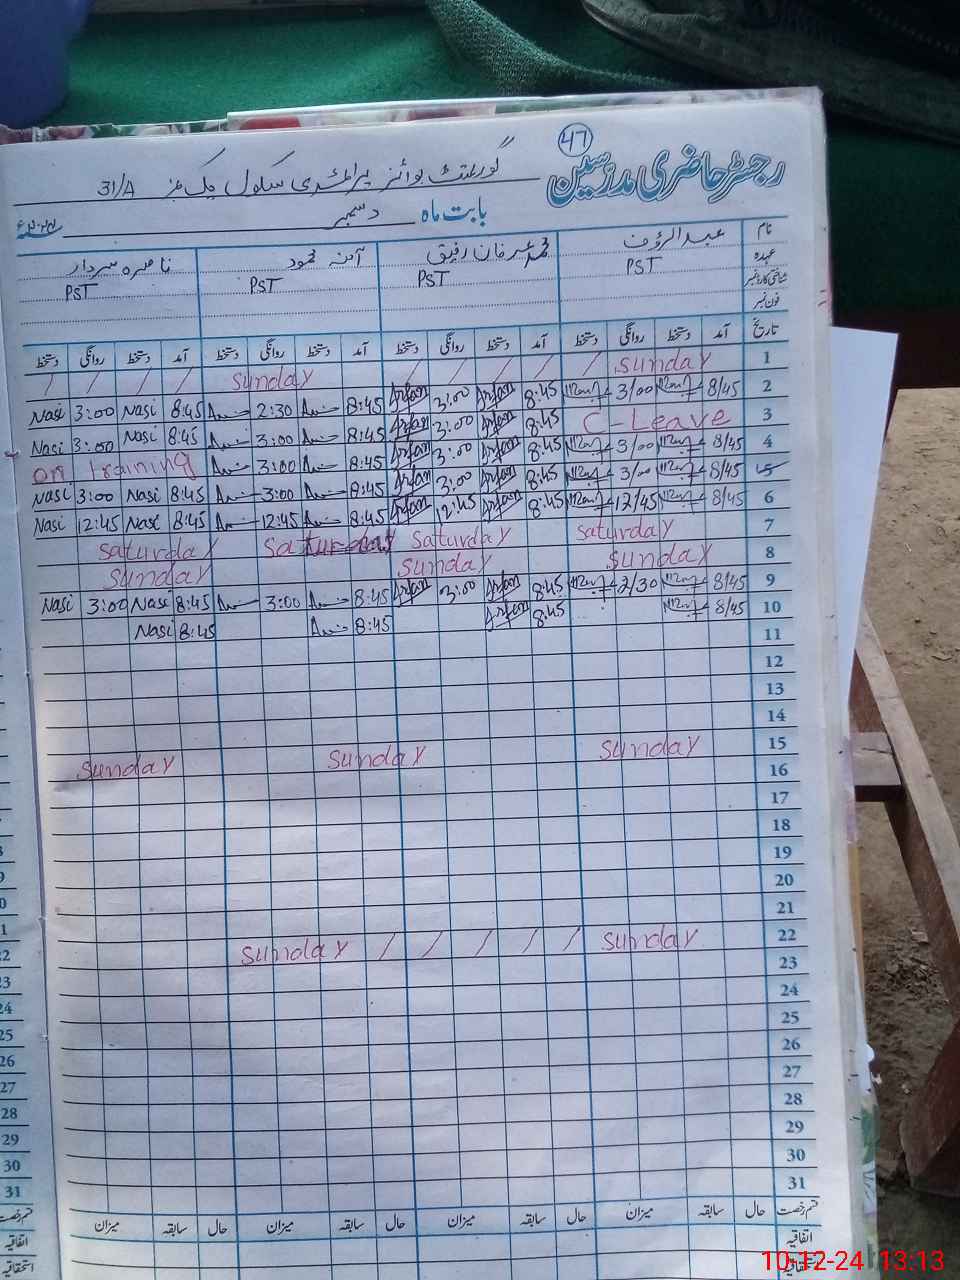 47
رجسٹر حاضری مدرسین
گورنمنٹ بوائز پرائمری سکول چک نمبر 31/A
بابت ماہ دسمبر ۲۰۲۴ء
نام عبدالرؤف محمد عرفان رفیق آمنہ محمود ناصرہ سردار
عہدہ PST PST PST PST
شناختی کارڈ نمبر
فون نمبر
تاریخ آمد دستخط روانگی دستخط آمد دستخط روانگی دستخط آمد دستخط روانگی دستخط آمد دستخط روانگی دستخط
/ / / / Sunday / / / / / Sunday 1
Nasi 3:00 Nasi 8:45 2:30 8:45 Arfan 3:00 Arfan 8:45 3/00 8/45 2
Nasi 3:00 Nasi 8:45 3:00 8:45 Arfan 3:00 Arfan 8:45 C-Leave 3
on training 3:00 8:45 Arfan 3:00 Arfan 8:45 3/00 8/45 4
Nasi 3:00 Nasi 8:45 3:00 8:45 Arfan 3:00 Arfan 8:45 3/00 8/45 5
Nasi 12:45 Nasi 8:45 12:45 8:45 Arfan 12:45 Arfan 8:45 12/45 8/45 6
Saturday Saturday Saturday Saturday 7
Sunday Sunday Sunday 8
Nasi 3:00 Nasi 8:45 3:00 8:45 Arfan 3:00 Arfan 8:45 2/30 8/45 9
Nasi 8:45 8:45 Arfan 8:45 8/45 10
11
12
13
14
Sunday Sunday Sunday 15
16
17
18
19
20
21
Sunday / / / / / Sunday 22
23
24
25
26
27
28
29
30
31
قسم رخصت حال سابقہ میزان حال سابقہ میزان حال سابقہ میزان حال سابقہ میزان
اتفاقیہ
استحقاقیہ
22
23
24
25
26
27
28
29
30
31
قسم رخصت
اتفاقیہ
استحقاقیہ
10-12-24 13:13